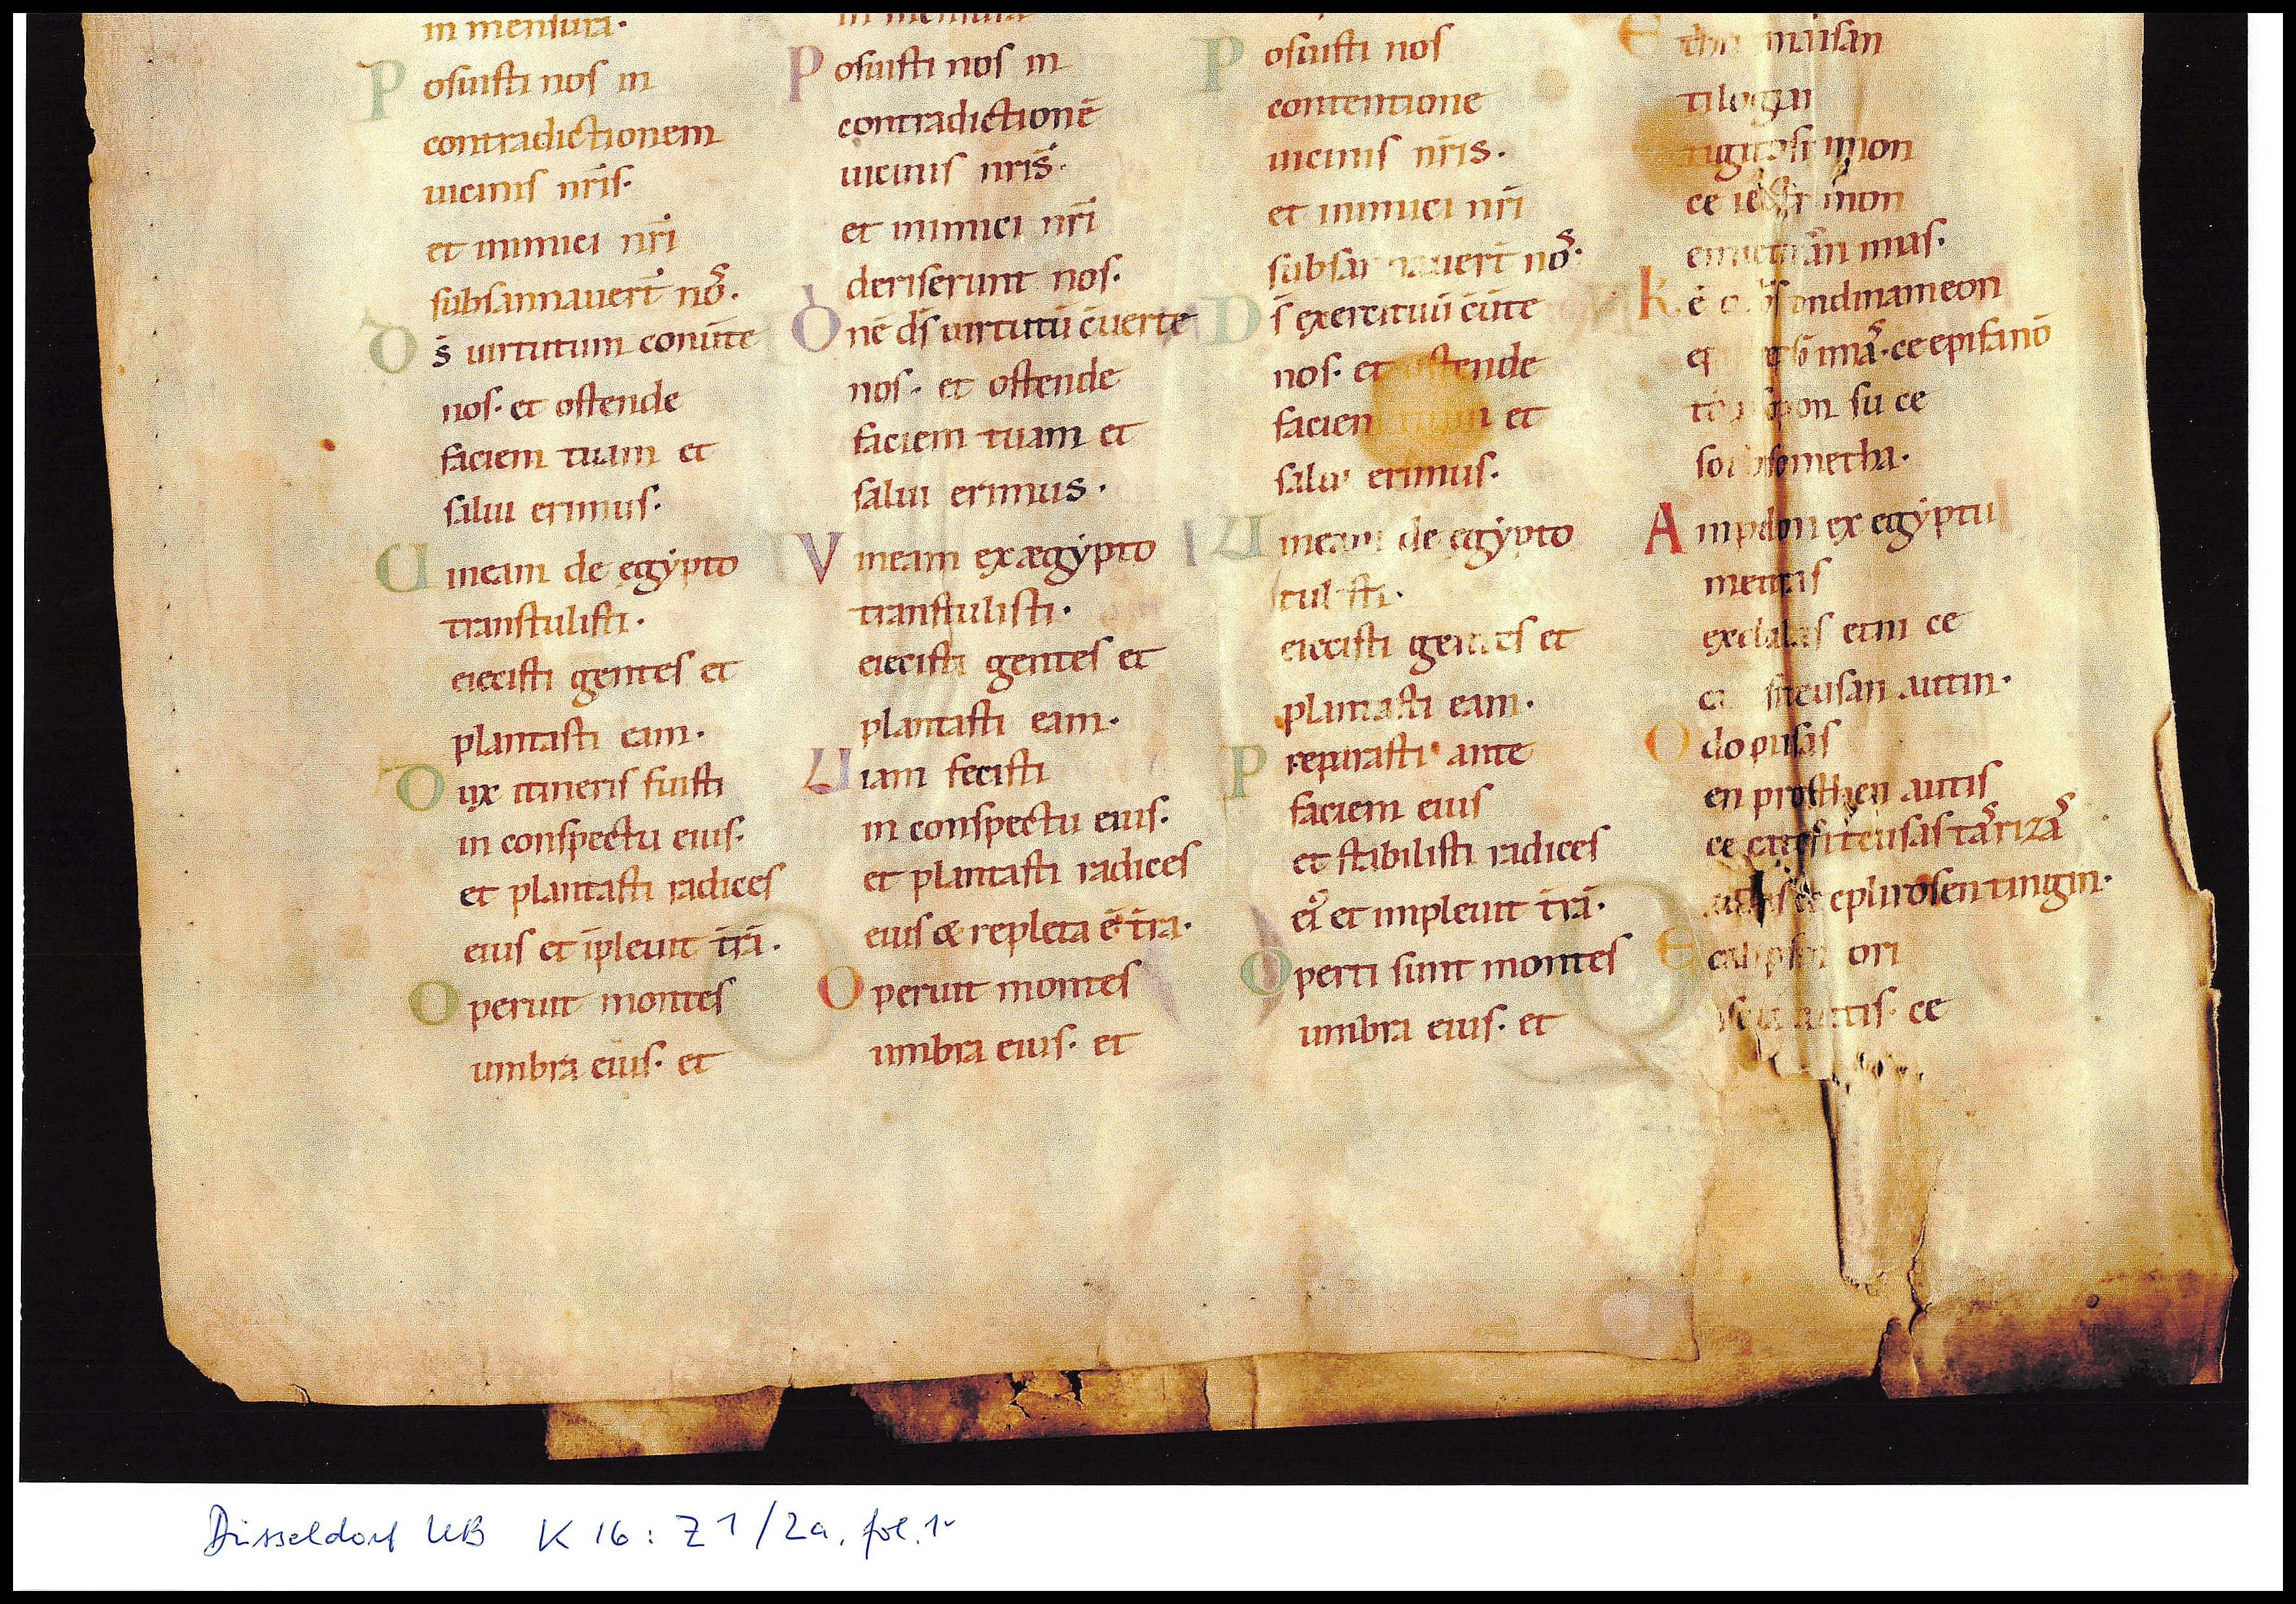 in mensura·
Posuisti nos in
contradictionem
uicinis nr̄is·
et inimici nr̄i
subsannauer̄t nos·
Ds̄ uirtutum conūte
nos· et ostende
faciem tuam et
salui erimus·
Uineam de egẏpto
transtulisti·
eiecisti gentes et
plantasti eam·
Dux itineris fuisti
in conspectu eius·
et plantasti radices
eius et īpleuit tr̄a·
Operuit montes
umbra eius· et
in mensura
Posuisti nos in
contradictionē
uicinis nr̄is·
et inimici nr̄i
deriserunt nos·
Dnē ds̄ uirtutū c̄uerte
nos· et ostende
faciem tuam et
salui erimus·
Vineam ex ægẏpto
transtulisti·
eiecisti gentes et
plantasti eam·
Uiam fecisti
in conspectu eius·
et plantasti radices
eius & repleta ē tr̄a·
Operuit montes
umbra eius· et
Posuisti nos
contentione
uicinis nr̄is·
et inimici nr̄i
nos·
Ds̄ exercituū c̄ūte
nos· et ostende
et
salui erimus·
Uineam de egẏpto
eiecisti gentes et
plantasti eam·
Preparasti ante
faciem eius
et stabilisti radices
et impleuit tr̄a·
Operti sunt montes
umbra eius· et
tilogian
ce
imon
imas·
ondinameon
ce epifanō
su ce
Ampelon ex egẏptu
etni ce
autin·
Odopiisas
en prosthen autis
ce
eplirosen tingin·
ori
ce
Düsseldorf UB K 16: Z 1/2a, fol. 1v